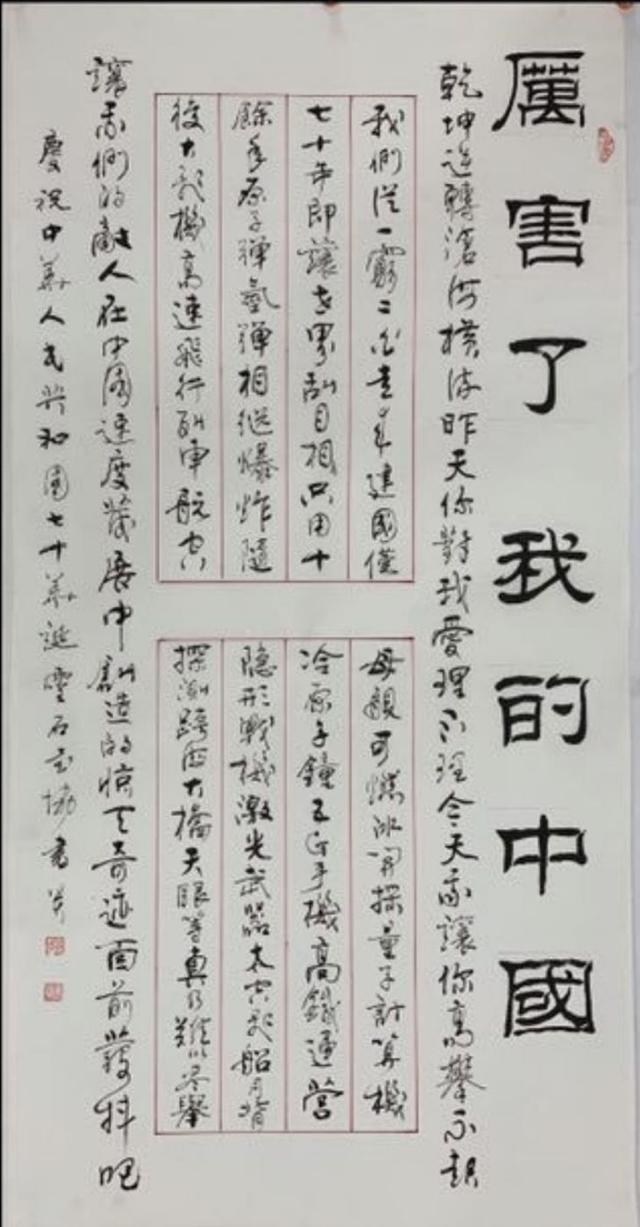 厲害了我的中國
乾坤逆轉滄海橫流昨天你對我愛理不理今天我讓你高攀不起
我們從一窮二白走來建國僅
七十年即讓世界刮目相只用十
餘年原子彈氫彈相繼爆炸隨
後大飛機高速飛行列車航空
母艦可燃冰開採量子計算機
冷原子鐘五G手機高鐵運營
隱形戰機激光武器太空飛船月背
探測跨海大橋天眼等真乃難以盡舉
讓我們的敵人在中國速度發展中創造的惊天奇迹面前發抖吧
慶祝中華人民共和國七十華誕靈石書協